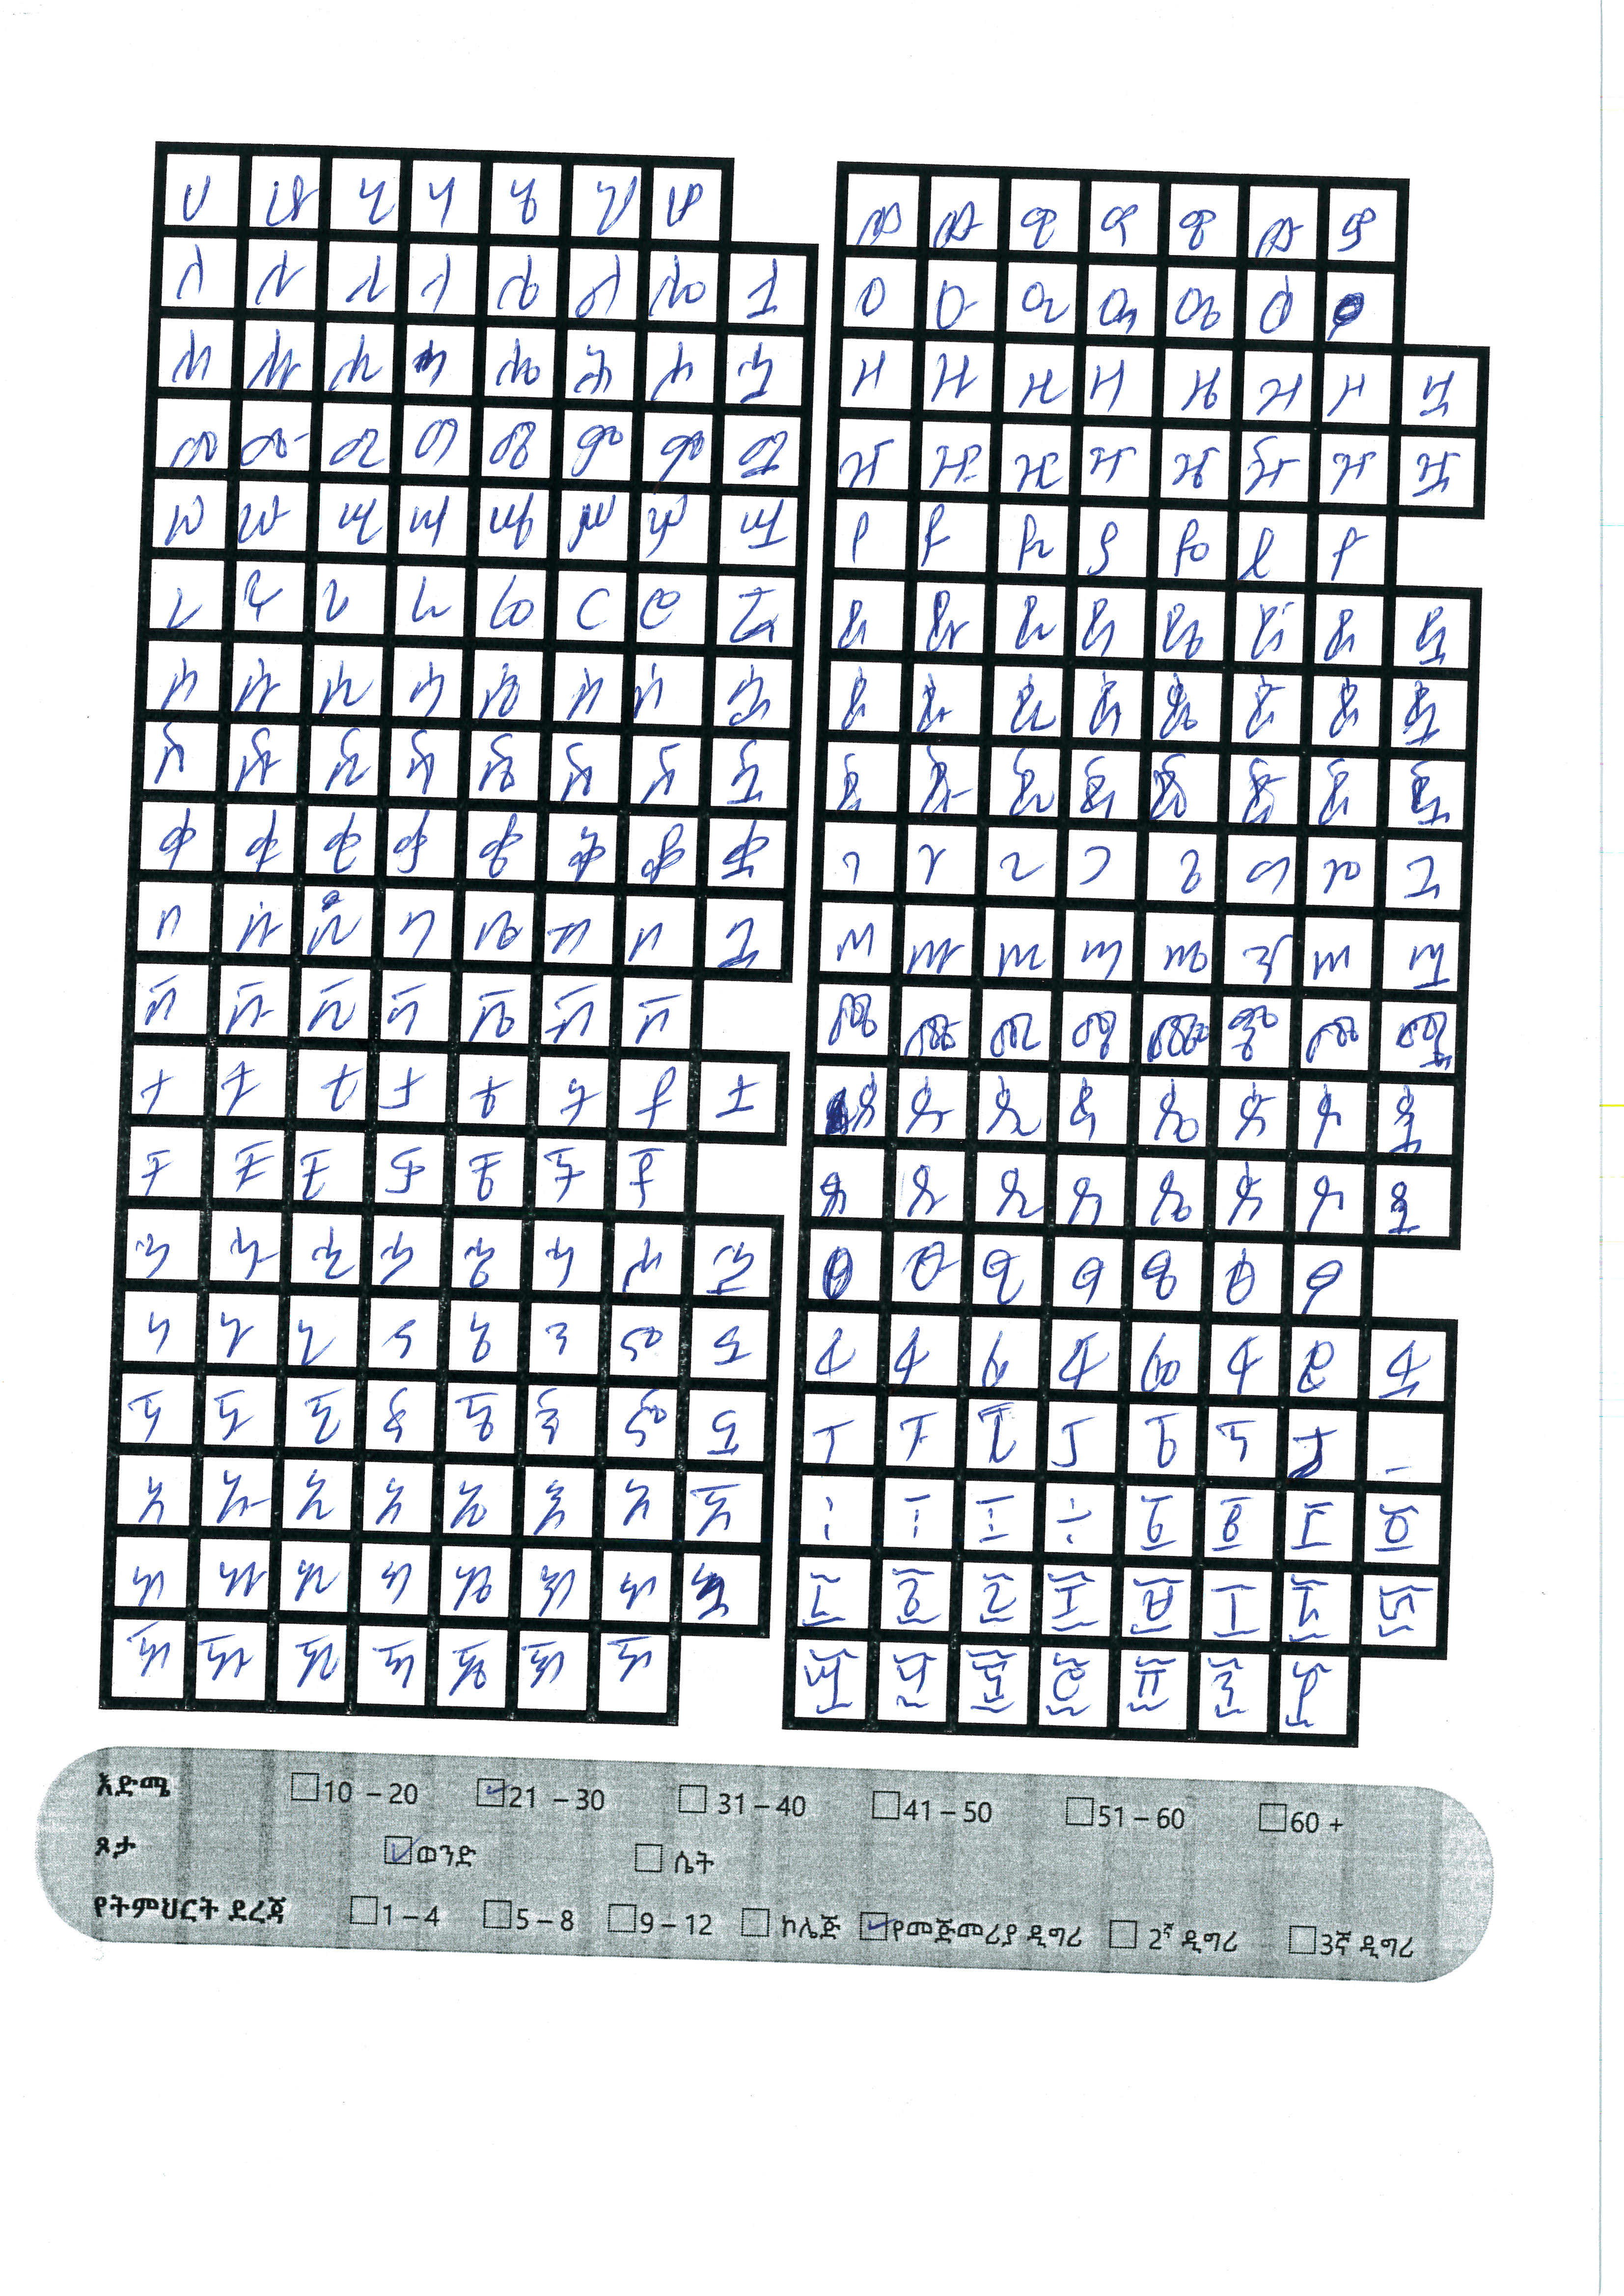 ሀ ሁ ሂ ሃ ሄ ህ ሆ
ለ ሉ ሊ ላ ሌ ል ሎ ሏ
ሐ ሑ ሒ ሓ ሔ ሕ ሖ ሗ
መ ሙ ሚ ማ ሜ ም ሞ ሟ
ሠ ሡ ሢ ሣ ሤ ሥ ሦ ሧ
ረ ሩ ሪ ራ ሬ ር ሮ ሯ
ሰ ሱ ሲ ሳ ሴ ስ ሶ ሷ
ሸ ሹ ሺ ሻ ሼ ሽ ሾ ሿ
ቀ ቁ ቂ ቃ ቄ ቅ ቆ ቋ
በ ቡ ቢ ባ ቤ ብ ቦ ቧ
ቨ ቩ ቪ ቫ ቬ ቭ ቮ
ተ ቱ ቲ ታ ቴ ት ቶ ቷ
ቸ ቹ ቺ ቻ ቼ ች ቾ
ኀ ኁ ኂ ኃ ኄ ኅ ኆ ኋ
ነ ኑ ኒ ና ኔ ን ኖ ኗ
ኘ ኙ ኚ ኛ ኜ ኝ ኞ ኟ
አ ኡ ኢ ኣ ኤ እ ኦ ኧ
ከ ኩ ኪ ካ ኬ ክ ኮ
ኸ ኹ ኺ ኻ ኼ ኽ ኾ
ወ ዉ ዊ ዋ ዌ ው ዎ
ዐ ዑ ዒ ዓ ዔ ዕ ዖ
ዘ ዙ ዚ ዛ ዜ ዝ ዞ ዟ
ዠ ዡ ዢ ዣ ዤ ዥ ዦ ዧ
የ ዩ ዪ ያ ዬ ይ ዮ
ደ ዱ ዲ ዳ ዴ ድ ዶ ዷ
ጀ ጁ ጂ ጃ ጄ ጅ ጆ ጇ
ገ ጉ ጊ ጋ ጌ ግ ጎ ጓ
ጠ ጡ ጢ ጣ ጤ ጥ ጦ ጧ
ጨ ጩ ጪ ጫ ጬ ጭ ጮ ጯ
ጰ ጱ ጲ ጳ ጴ ጵ ጶ ጷ
ጸ ጹ ጺ ጻ ጼ ጽ ጾ ጿ
ፀ ፁ ፂ ፃ ፄ ፅ ፆ
ፈ ፉ ፊ ፋ ፌ ፍ ፎ ፏ
ፐ ፑ ፒ ፓ ፔ ፕ ፖ
፩ ፪ ፫ ፬ ፭ ፮ ፯ ፰
እድሜ 10 – 20 21 – 30 31 – 40 41 – 50 51 – 60 60 +
ጾታ ወንድ ሴት
የትምህርት ደረጃ 1 – 4 5 – 8 9 – 12 ኮሌጅ የመጅመሪያ ዲግሪ 2ኛ ዲግሪ 3ኛ ዲግሪ